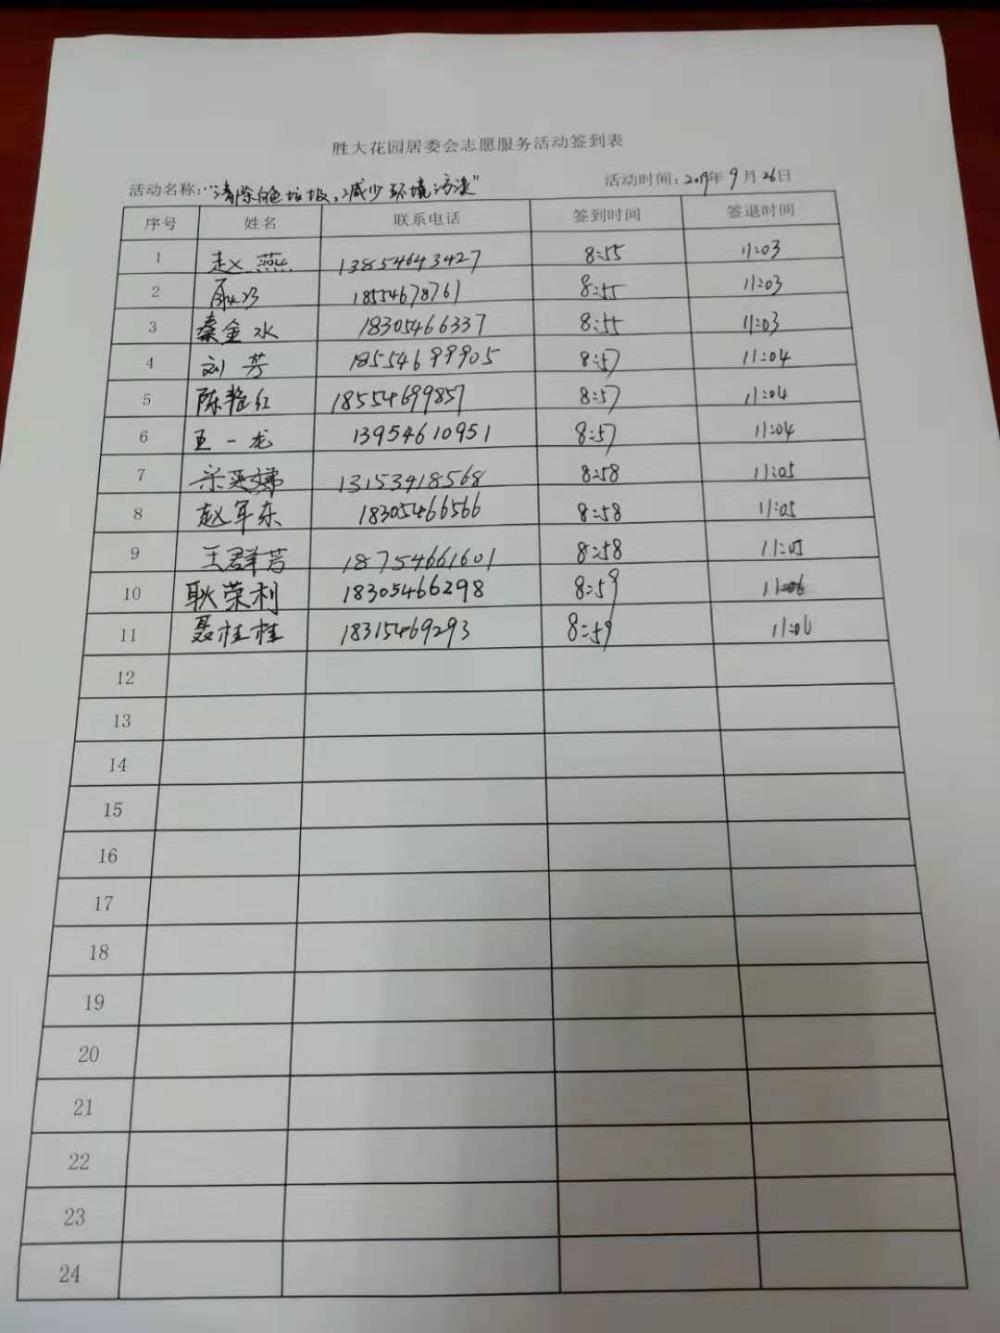 胜大花园居委会志愿服务活动签到表
活动名称:"清除白色垃圾,减少环境污染" 活动时间:2019年9月26日
序号 姓名 联系电话 签到时间 签退时间
1 赵燕 13854643427 8:55 11:03
2 18554678761 8:55 11:03
3 秦金水 18305466337 8:55 11:03
4 刘芳 18554699905 8:57 11:04
5 陈艳红 18554699857 8:57 11:04
6 王一龙 13954610951 8:57 11:04
7 13153418568 8:58 11:05
8 赵军东 18305466566 8:58 11:05
9 王群芳 18754661601 8:58 11:05
10 耿荣利 18305466298 8:59 11:06
11 聂桂桂 18315469293 8:59 11:06
12
13
14
15
16
17
18
19
20
21
22
23
24